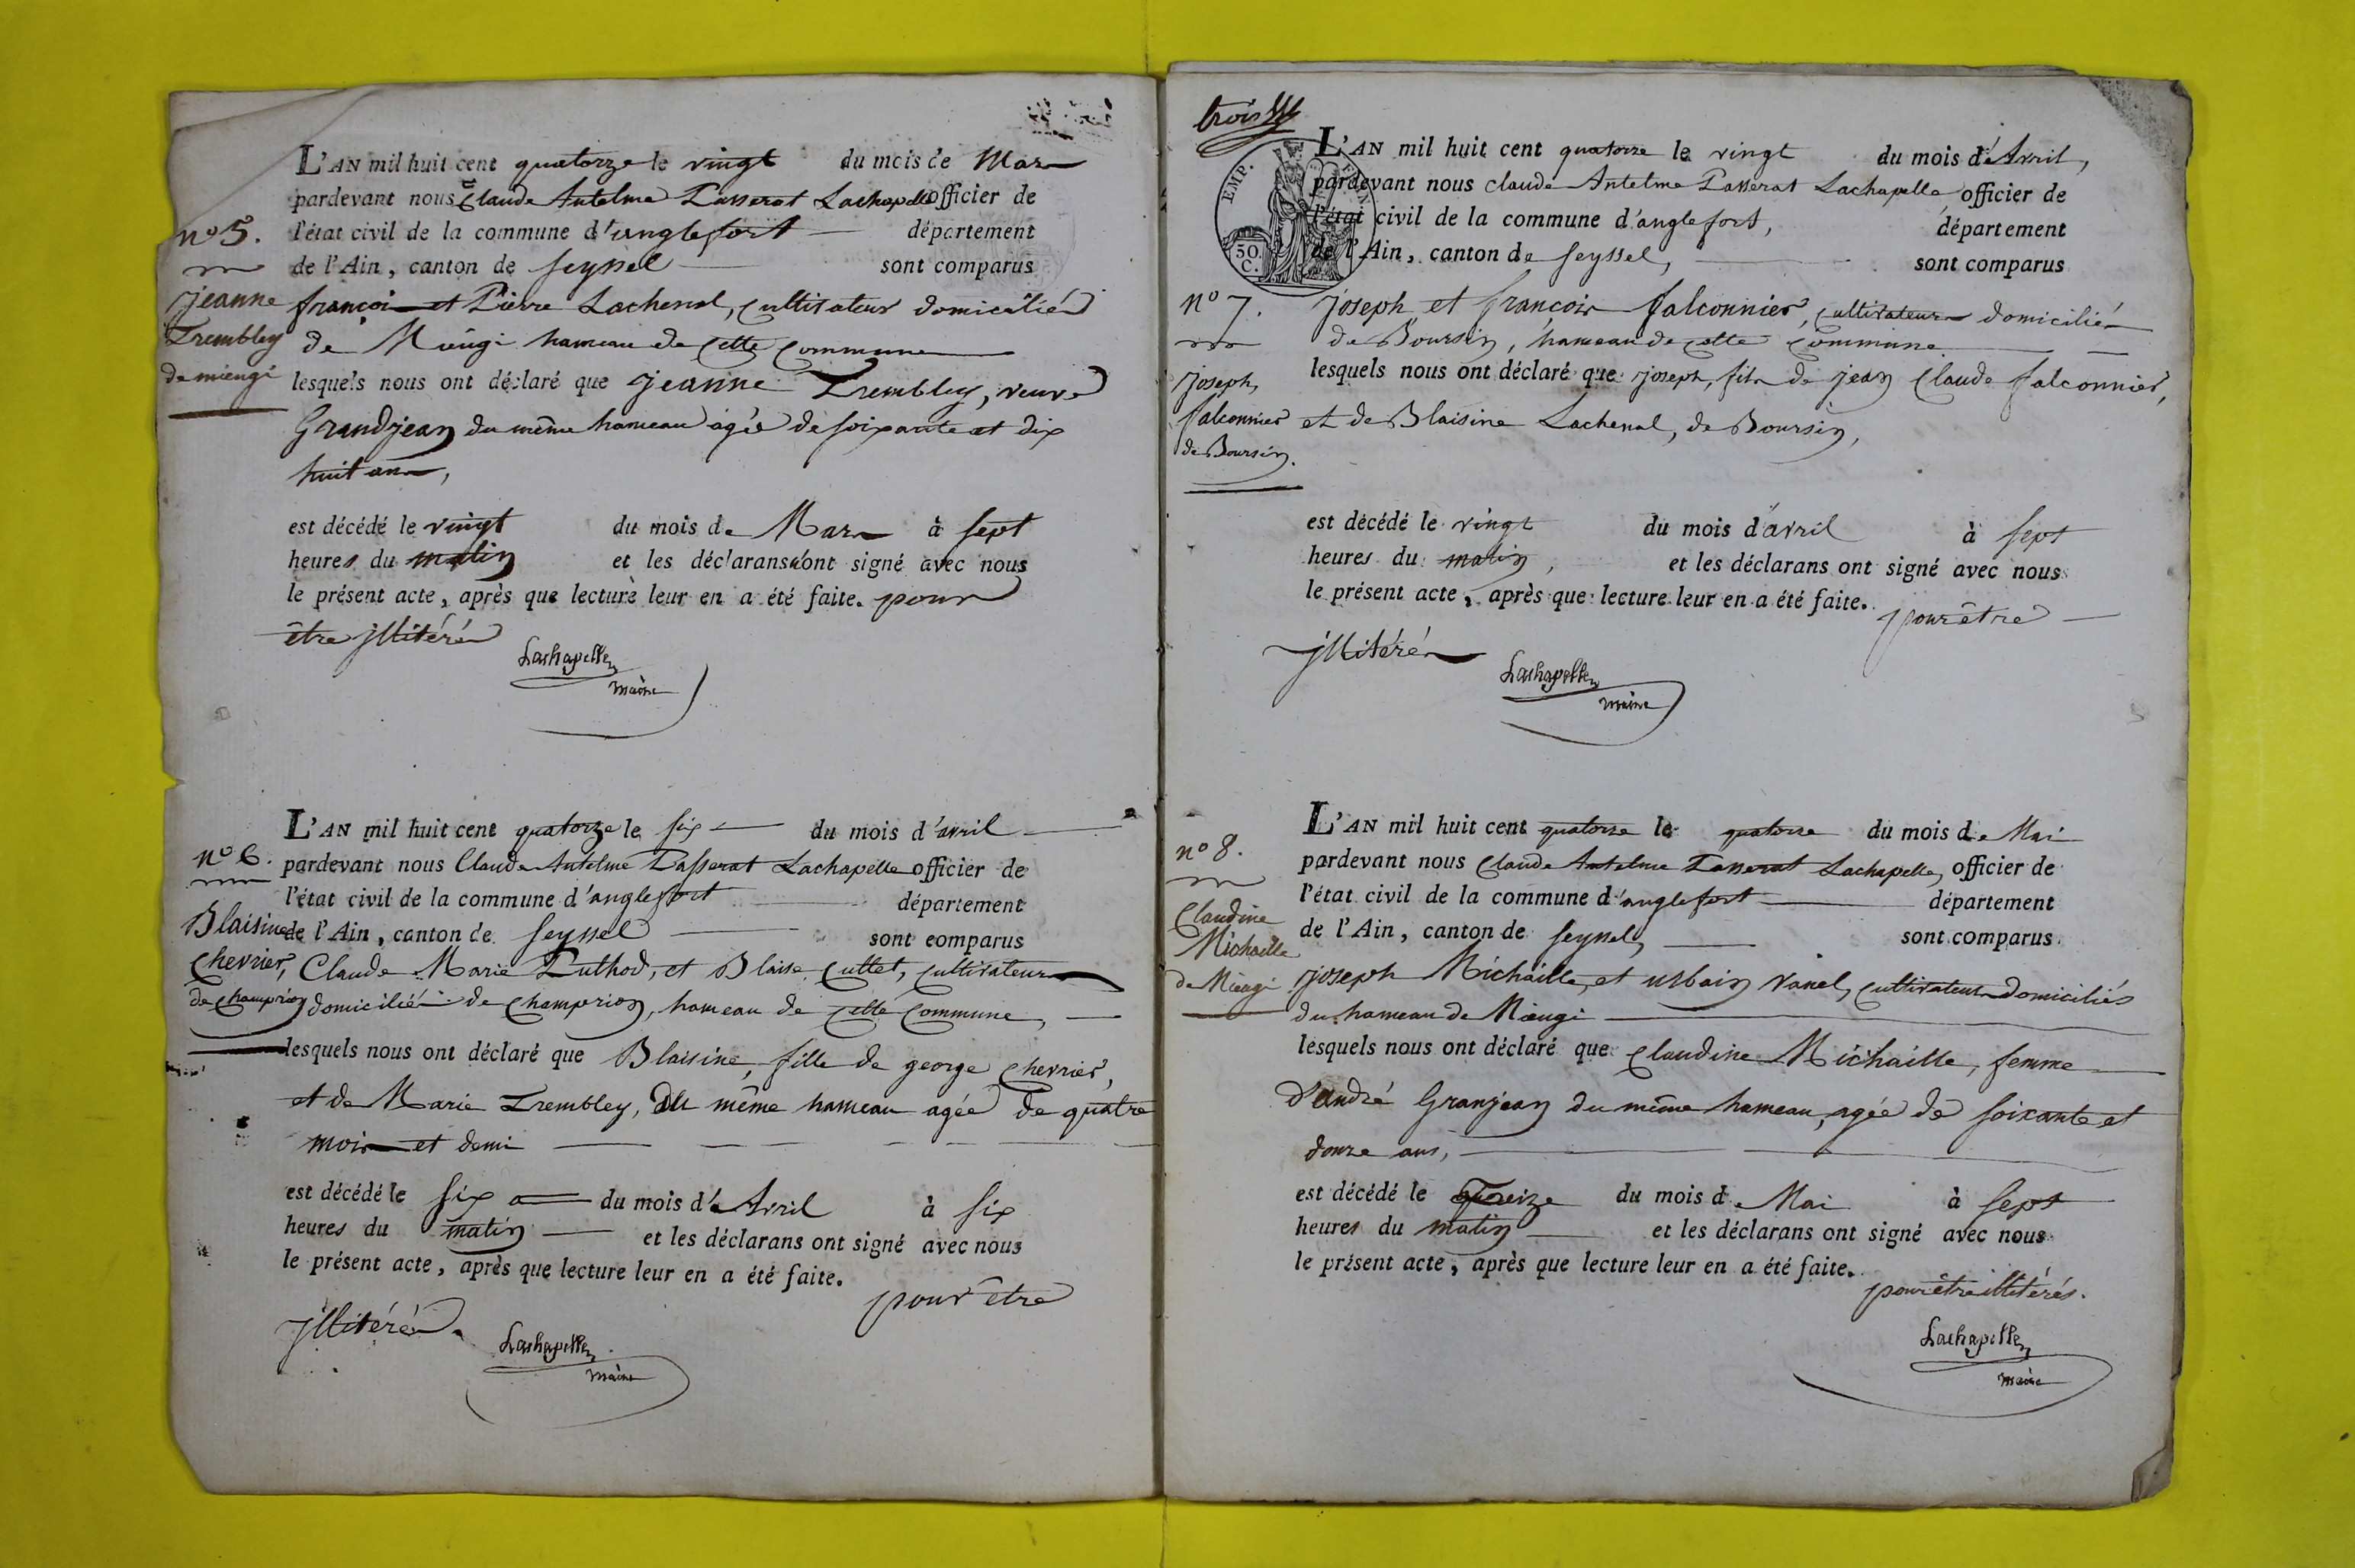 L'AN mil huit cent quatorze le vingt du mois de Mars
pardevant nous Claude Antelme Passerat Lachapelle officier de
n° 5. l'état civil de la commune d'anglefort département
de l'Ain, canton de Seyssel sont comparus
jeanne françois et Pierre Lachenal, cultivateurs domiciliés
Trembley de Miéugi hameau de cette commune
de miéugi lesquels nous ont déclaré que jeanne Trembley, veuve
Grandjean du même hameau agée de soixante et dix
huit ans,
est décédé le vingt du mois de Mars à sept
heures du matin et les déclarans n'ont signé avec nous
le présent acte, après que lecture leur en a été faite. pour
être jllitérés
Lachapelle
maire
L'AN mil huit cent quatorze le six du mois d'avril
n° 6. pardevant nous Claude Antelme Passerat Lachapelle officier de
l'état civil de la commune d'anglefort département
Blaisine de l'Ain, canton de Seyssel sont comparus
chevrier, Claude Marie Puthod, et Blaise cuttet, cultivateurs
de champrion domiciliés de champrion, hameau de cette commune,
lesquels nous ont déclaré que Blaisine, fille de george chevrier,
et de Marie Trembley, du même hameau agée de quatre
mois et demi
est décédé le six du mois d'Avril à six
heures du matin et les déclarans ont signé avec nous
le présent acte, après que lecture leur en a été faite.
pour être
jllitérés.
Lachapelle
maire
trois
TEMP.
50
C.
L'AN mil huit cent quatorze le vingt du mois d'Avril,
pardevant nous claude Antelme Passerat Lachapelle officier de
l'état civil de la commune d'anglefort, département
de l'Ain, canton de seyssel, sont comparus
n° 7. joseph et françois falconnier, cultivateurs domiciliés
de Boursin, hameau de cette commune
joseph, lesquels nous ont déclaré que joseph, fils de jean claude falconnier,
falconnier et de Blaisine Lachenal, de Boursin,
de Boursin.
est décédé le vingt du mois d'avril à sept
heures du matin, et les déclarans ont signé avec nous
le présent acte, après que lecture leur en a été faite. pour être
jllitérés
Lachapelle
maire
L'AN mil huit cent quatorze le quatorze du mois de Mai
n° 8. pardevant nous claude Antelme Passerat Lachapelle, officier de
l'état civil de la commune d'anglefort département
Claudine de l'Ain, canton de seyssel, sont comparus
Michaille
de Miéugi joseph Michaille, et urbain vanel, cultivateurs domiciliés
du hameau de Miéugi
lesquels nous ont déclaré que claudine Michaille, femme
d'andré Granjean du même hameau, agée de soixante et
douze ans,
est décédé le Treize du mois de Mai à sept
heures du matin et les déclarans ont signé avec nous
le présent acte, après que lecture leur en a été faite.
pour être illitérés.
Lachapelle
maire